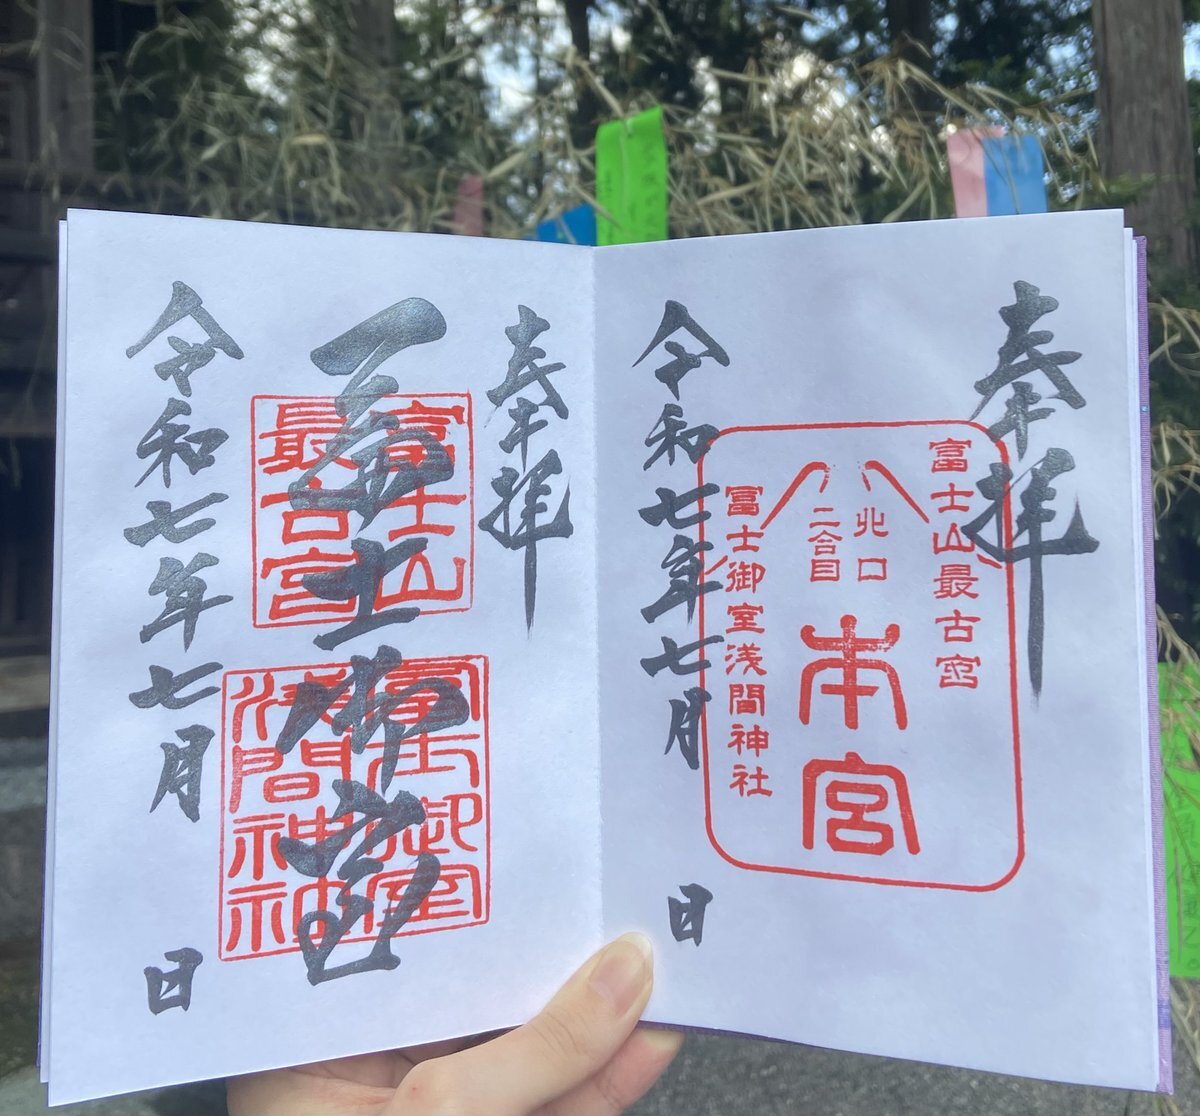 奉拝
富士山最古宮
北口
二合目
本宮
富士御室浅間神社
令和七年七月 日
奉拝
冨士御室
富士山
最古宮
富士御室
浅間神社
令和七年七月 日